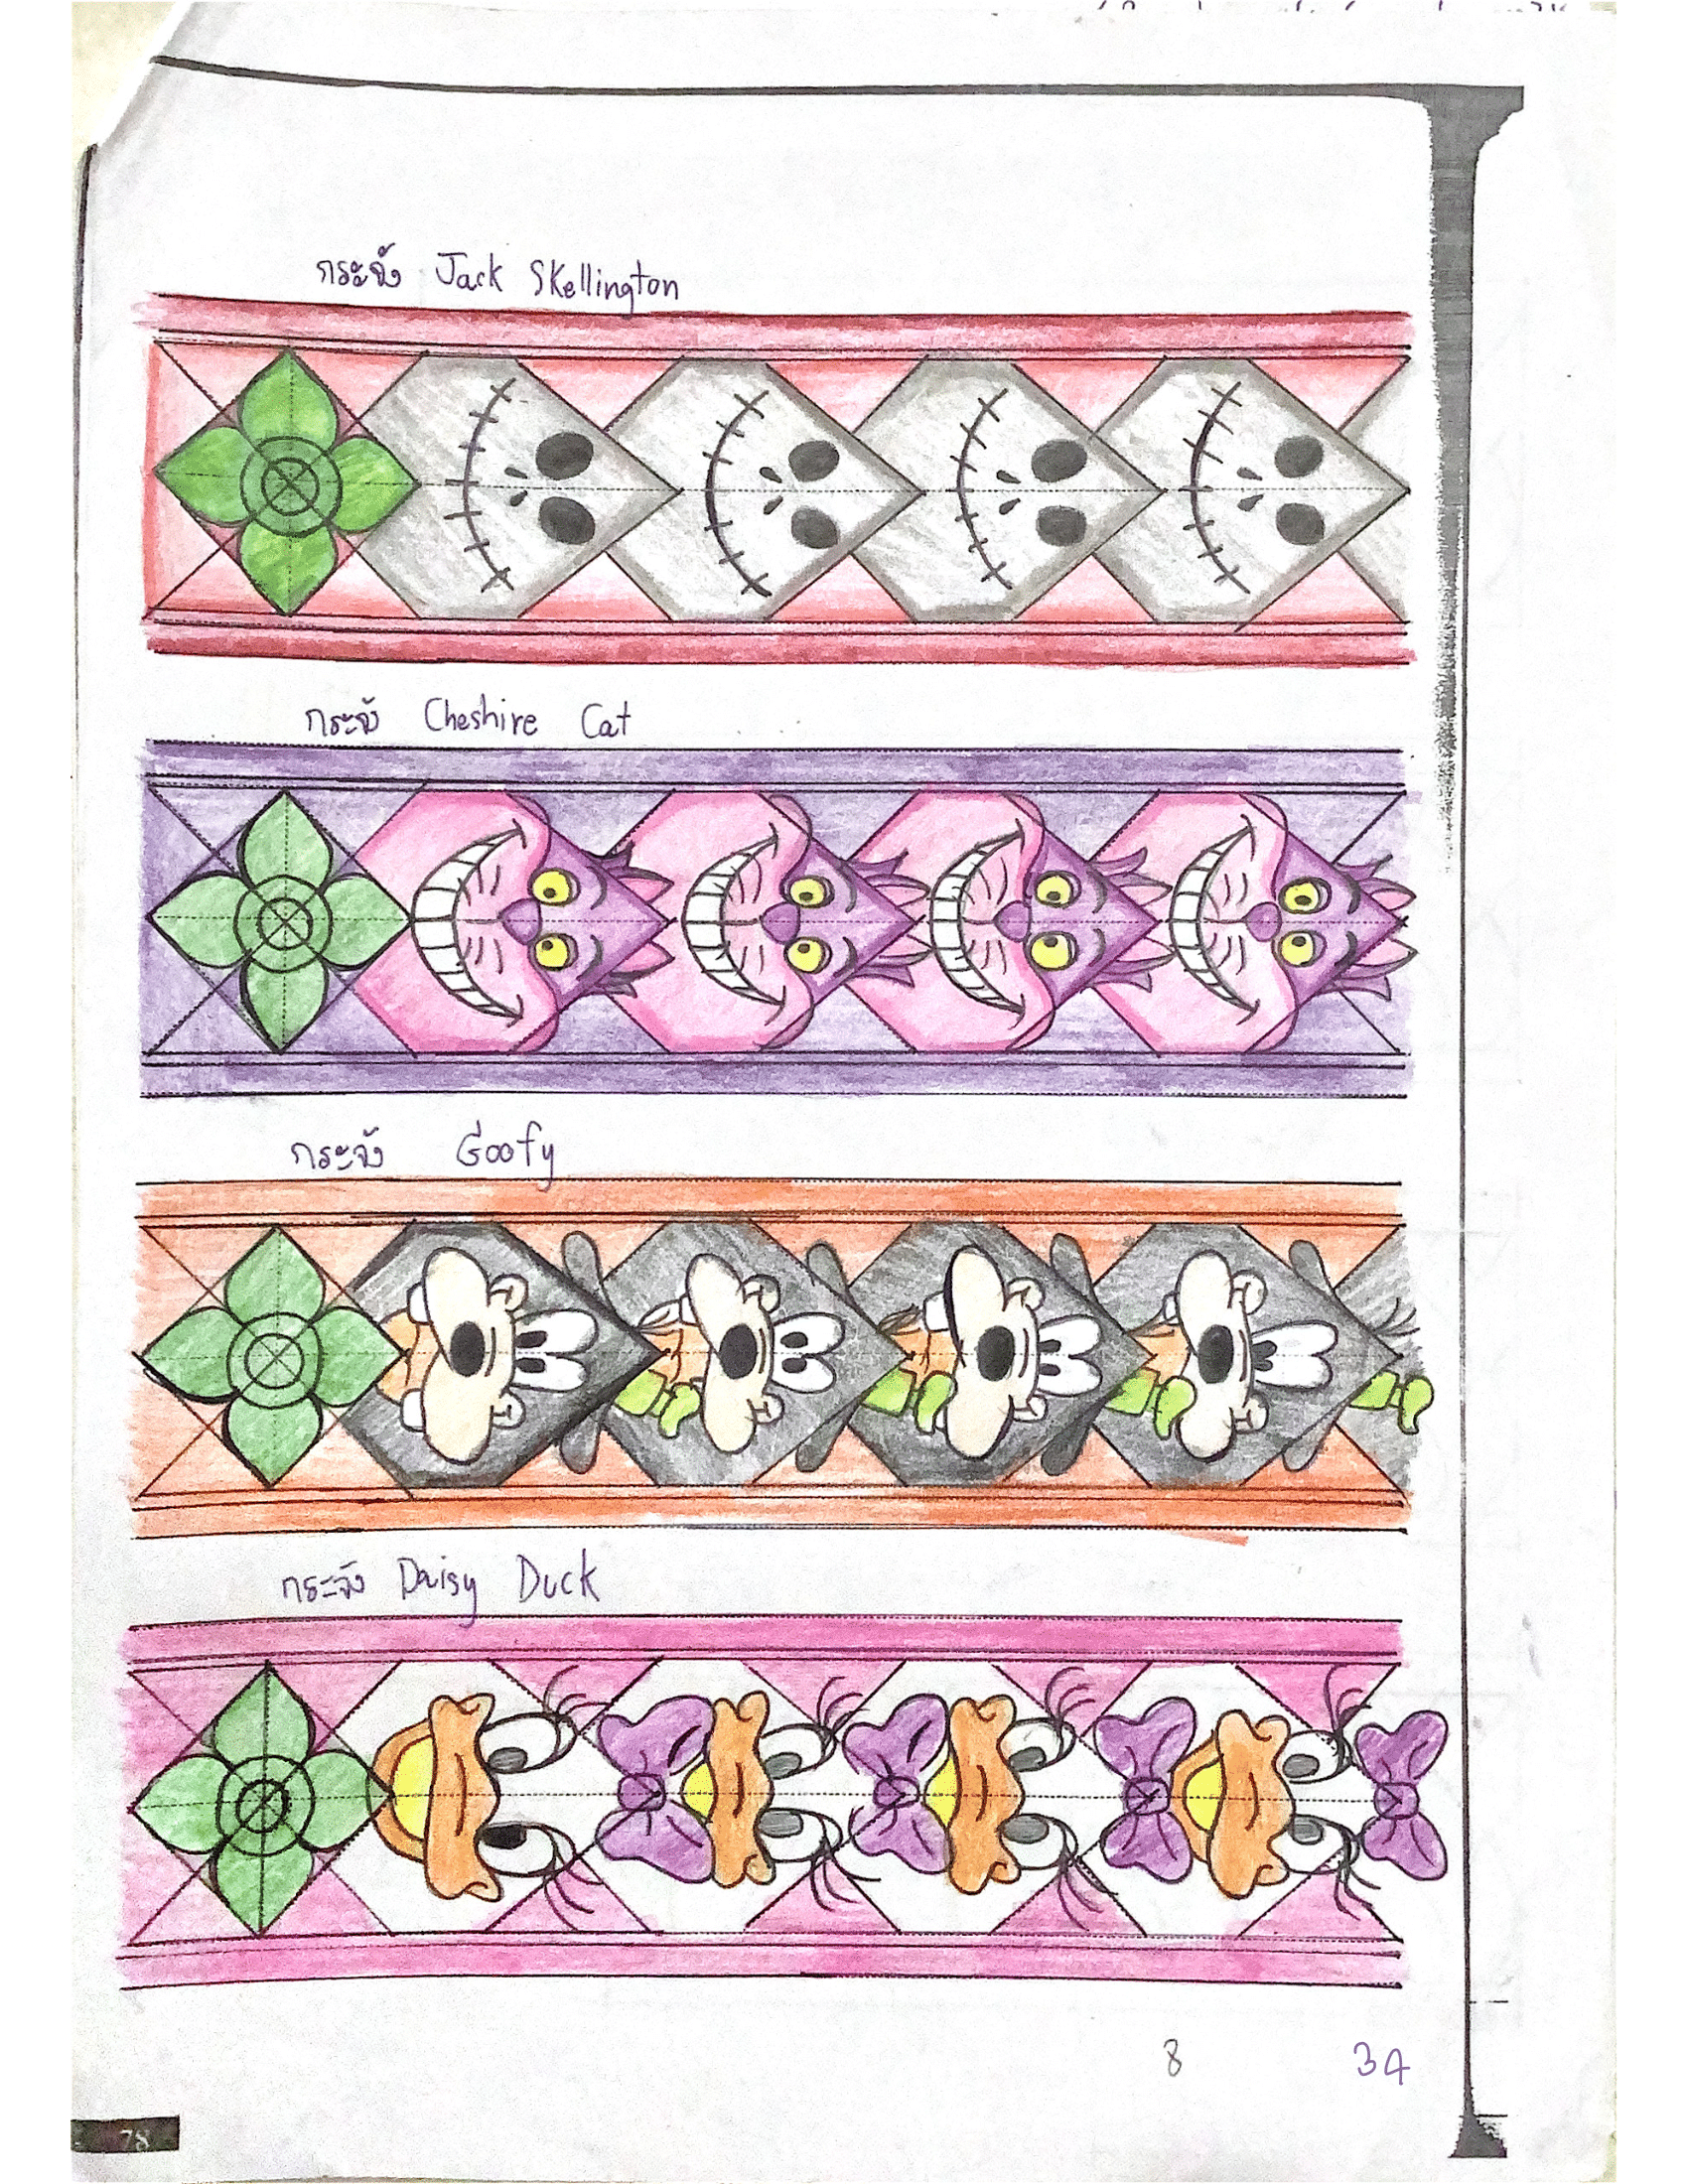 กระจัง Jack Skellington
กระจัง Cheshire Cat
กระจัง Goofy
กระจัง Daisy Duck
8 34
78